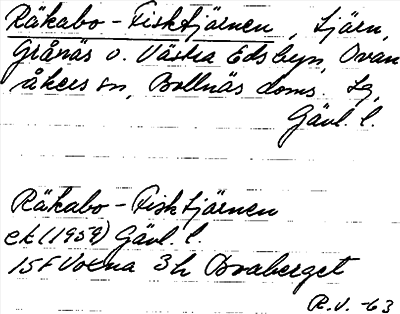 Räkabo-Fisktjärnen, Tjärn,
Grånäs o. Västra Edsbyn, Ovan
åkers sn, Bollnäs doms. Lg,
Gävl. l.
Räkabo-Fisktjärnen
ek (1959) Gävl. l.
15F Voxna 3h Ovaberget
R.V. -63